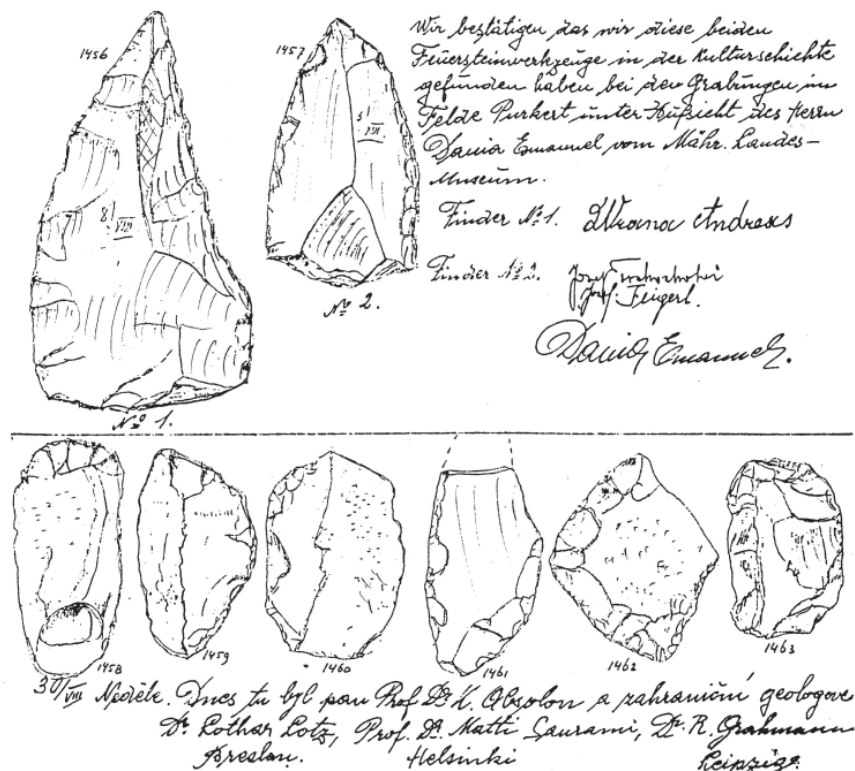 1456
1457
Wir bestätigen das wir diese beiden
Feuersteinwerkzeuge in der Kulturschichte
gefunden haben bei den Grabungen im
Felde Purkert unter Aufsicht des Herrn
Dania Emanuel vom Mähr. Landes-
Museum.
81/VIII
5/VIII
Finder No 1. Wrana Andreas
Finder No 2. Josef
Josef Feigerl.
Dania Emanuel.
No 2.
No 1.
1458
1459
1460
1461
1462
1463
30/VIII Neděle. Dnes tu byl pan Prof Dr K. Absolon a zahraniční geologove
Dr Lothar Lotz, Prof. Dr. Matti Saurami, Dr. R. Grahmann
Breslau. Helsinki Leipzig.